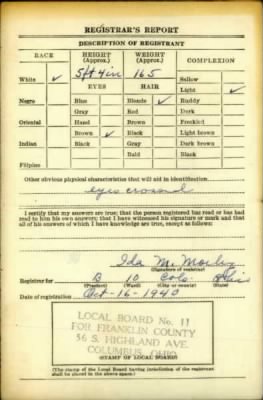 REGISTRAR'S REPORT
DESCRIPTION OF REGISTRANT
RACE HEIGHT (Approx.) WEIGHT (Approx.) COMPLEXION
5 ft 4 in 165 Sallow
White ✓ EYES HAIR Light ✓
Negro Blue Blonde ✓ Ruddy
Gray Red Dark
Oriental Hazel Brown Freckled
Brown ✓ Black Light brown
Indian Black Gray Dark brown
Bald Black
Filipino
Other obvious physical characteristics that will aid in identification
eyes crossed
I certify that my answers are true; that the person registered has read or has had
read to him his own answers; that I have witnessed his signature or mark and that
all of his answers of which I have knowledge are true, except as follows:
Ida M.
(Signature of registrar)
Registrar for B 10 Cols Ohio
(Precinct) (Ward) (City or county) (State)
Date of registration Oct-16-1940
LOCAL BOARD No. 11
FOR FRANKLIN COUNTY
56 S. HIGHLAND AVE.
COLUMBUS, OHIO
(STAMP OF LOCAL BOARD)
(The stamp of the Local Board having jurisdiction of the registrant
shall be placed in the above space.)